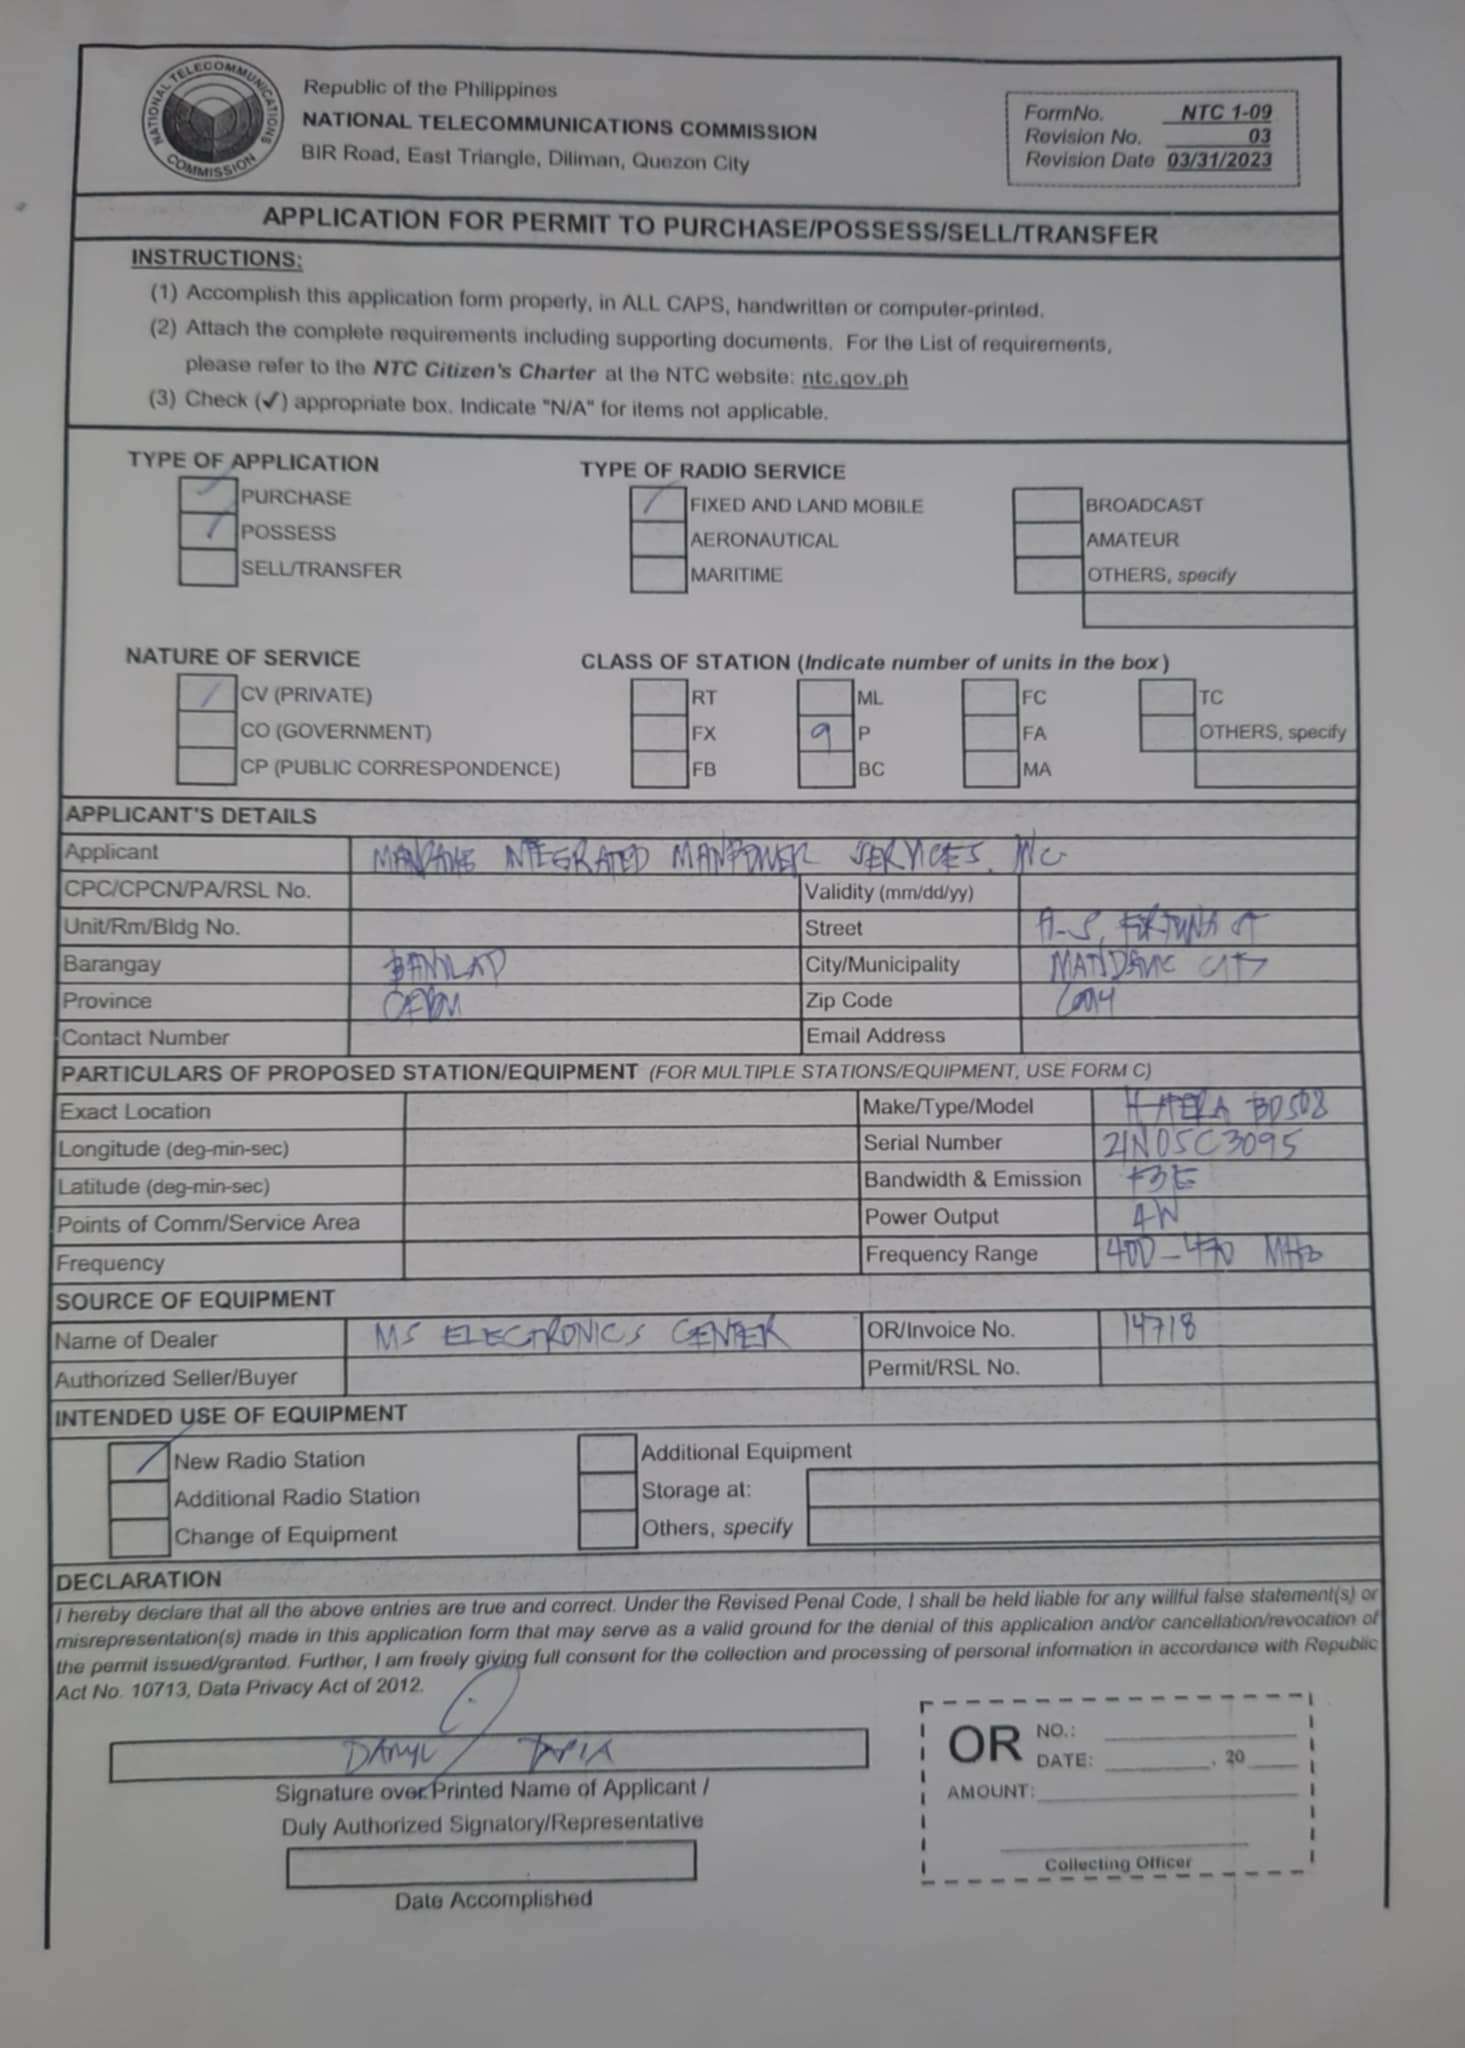 NATIONAL TELECOMMUNICATIONS COMMISSION
Republic of the Philippines
NATIONAL TELECOMMUNICATIONS COMMISSION
BIR Road, East Triangle, Diliman, Quezon City
FormNo. NTC 1-09
Revision No. 03
Revision Date 03/31/2023
APPLICATION FOR PERMIT TO PURCHASE/POSSESS/SELL/TRANSFER
INSTRUCTIONS:
(1) Accomplish this application form properly, in ALL CAPS, handwritten or computer-printed.
(2) Attach the complete requirements including supporting documents. For the List of requirements,
please refer to the NTC Citizen's Charter at the NTC website: ntc.gov.ph
(3) Check (✓) appropriate box. Indicate "N/A" for items not applicable.
TYPE OF APPLICATION
✓ PURCHASE
✓ POSSESS
SELL/TRANSFER
TYPE OF RADIO SERVICE
/ FIXED AND LAND MOBILE
AERONAUTICAL
MARITIME
BROADCAST
AMATEUR
OTHERS, specify
NATURE OF SERVICE
/ CV (PRIVATE)
CO (GOVERNMENT)
CP (PUBLIC CORRESPONDENCE)
CLASS OF STATION (Indicate number of units in the box)
RT ML FC TC
FX 9 P FA OTHERS, specify
FB BC MA
APPLICANT'S DETAILS
Applicant INTEGRATED MANPOWER SERVICES, INC
CPC/CPCN/PA/RSL No. Validity (mm/dd/yy)
Unit/Rm/Bldg No. Street A-S, FORTUNA ST
Barangay BANILAD City/Municipality MANDAUE CITY
Province CEBU Zip Code 6014
Contact Number Email Address
PARTICULARS OF PROPOSED STATION/EQUIPMENT (FOR MULTIPLE STATIONS/EQUIPMENT, USE FORM C)
Exact Location Make/Type/Model BD508
Longitude (deg-min-sec) Serial Number 21N05C3095
Latitude (deg-min-sec) Bandwidth & Emission F3E
Points of Comm/Service Area Power Output 4W
Frequency Frequency Range 400-470 MHz
SOURCE OF EQUIPMENT
Name of Dealer MS ELECTRONICS CENTER OR/Invoice No. 14718
Authorized Seller/Buyer Permit/RSL No.
INTENDED USE OF EQUIPMENT
/ New Radio Station Additional Equipment
Additional Radio Station Storage at:
Change of Equipment Others, specify
DECLARATION
I hereby declare that all the above entries are true and correct. Under the Revised Penal Code, I shall be held liable for any willful false statement(s) or
misrepresentation(s) made in this application form that may serve as a valid ground for the denial of this application and/or cancellation/revocation of
the permit issued/granted. Further, I am freely giving full consent for the collection and processing of personal information in accordance with Republic
Act No. 10713, Data Privacy Act of 2012.
DARYL TAPIA
Signature over Printed Name of Applicant /
Duly Authorized Signatory/Representative
Date Accomplished
OR NO.:
DATE: , 20
AMOUNT:
Collecting Officer